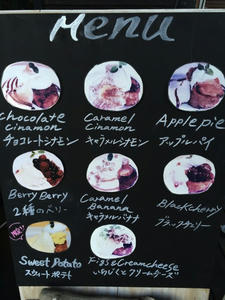 Menu
Chocolate
Cinamon
チョコレートシナモン
Caramel
Cinamon
キャラメルシナモン
Apple pie
アップルパイ
Berry Berry
2種のベリー
Caramel
Banana
キャラメルバナナ
Blackcherry
ブラックチェリー
Sweet Potato
スウィートポテト
Figs & Creamcheese
いちじくとクリームチーズ